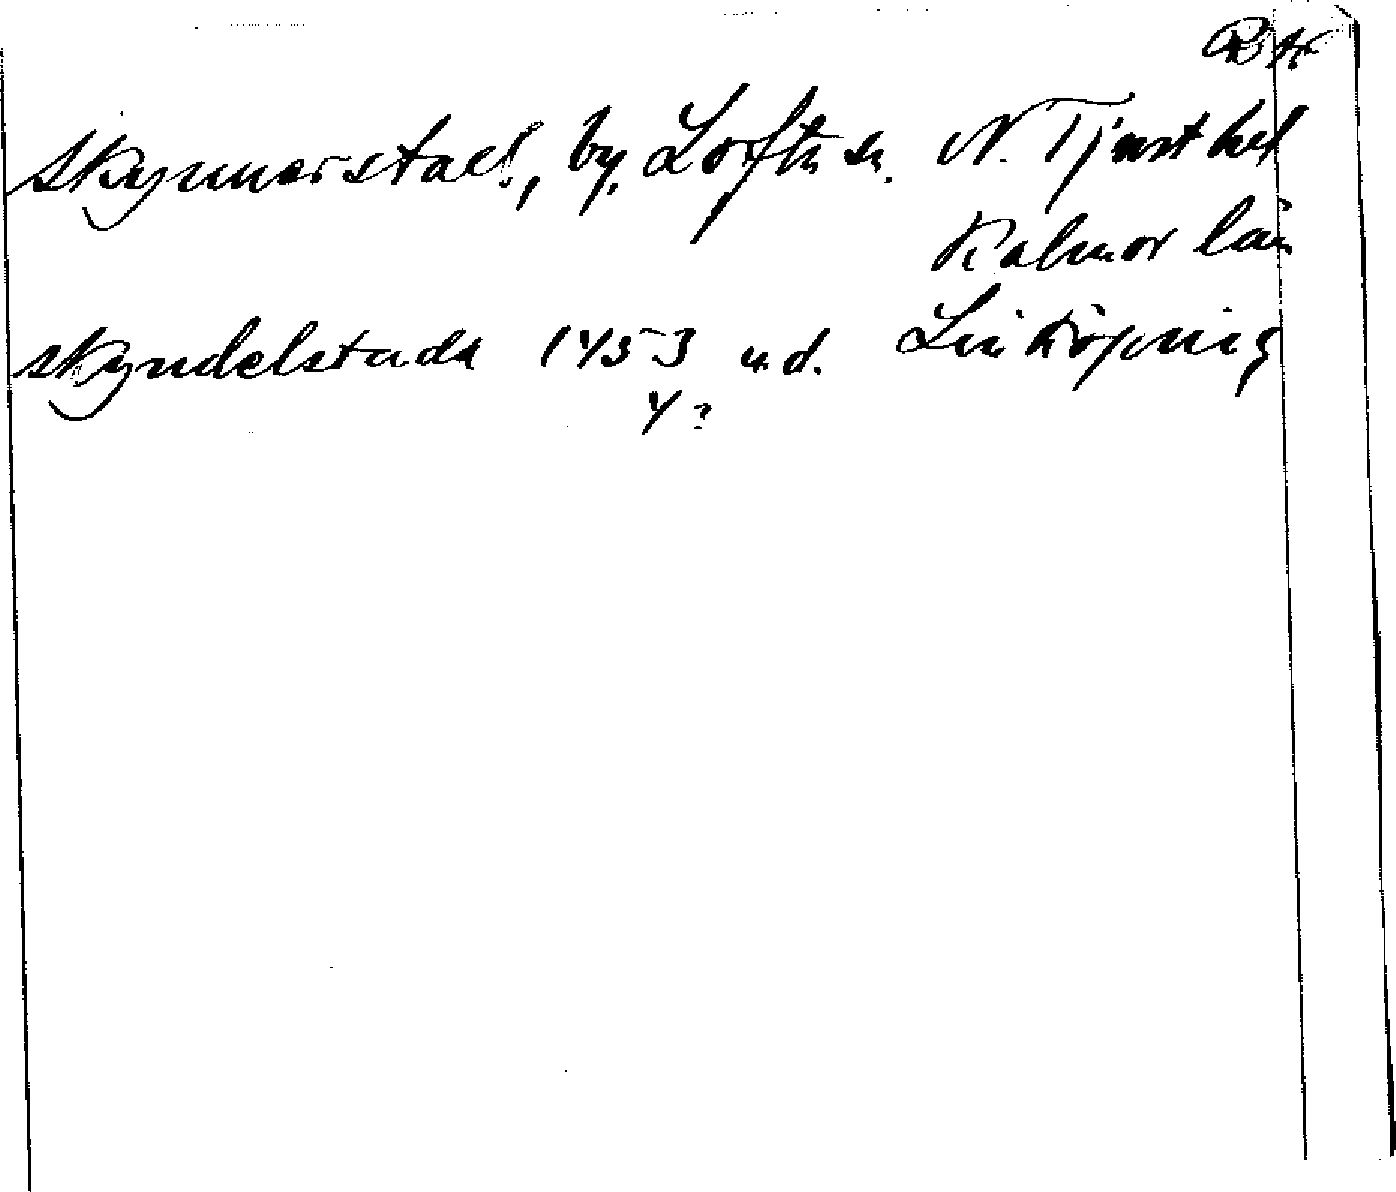 Skynnerstad, by, Lofta sn. N. Tjust hd
Kalmar län
Skyndelstada 1453 u.d. Linköping
4 ?